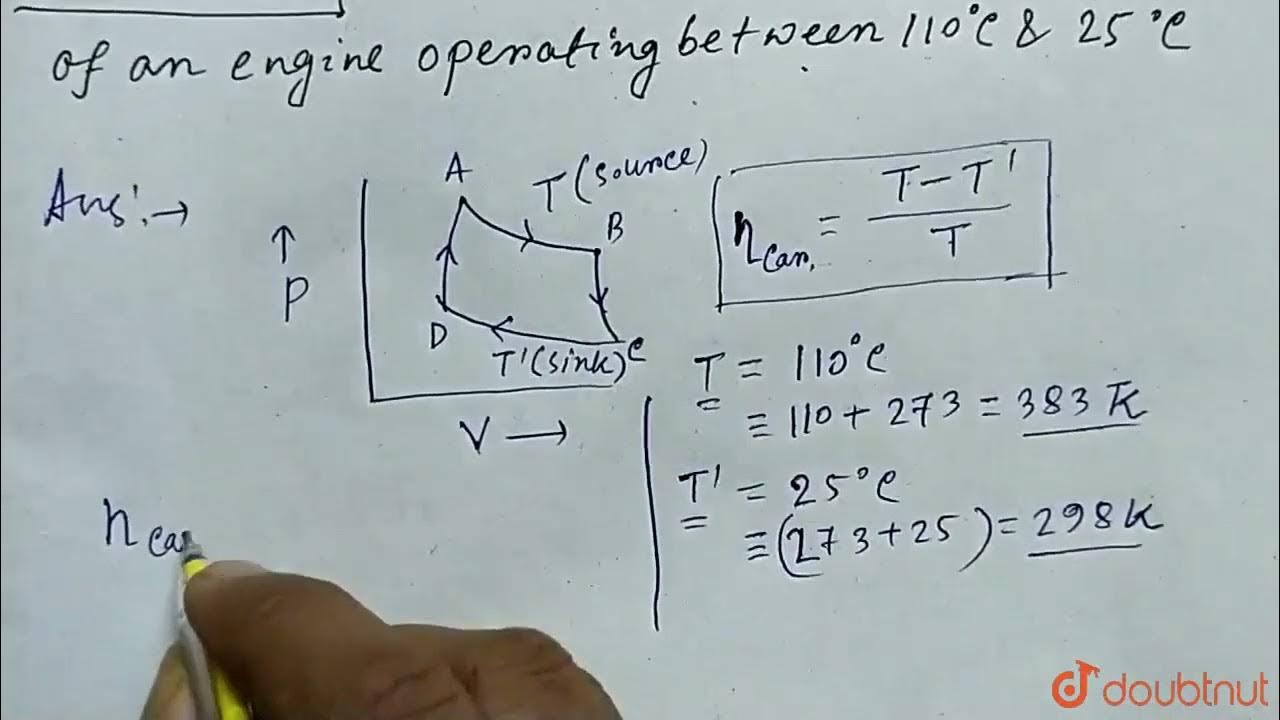 of an engine operating between 110°C & 25°C
Ans:→
A
T (source)
B
↑
P
D
T'(sink)
C
V →
η Car. = T - T' / T
T = 110°C
≡ 110 + 273 = 383 K
T' = 25°C
≡ (273+25) = 298 K
η Car
doubtnut